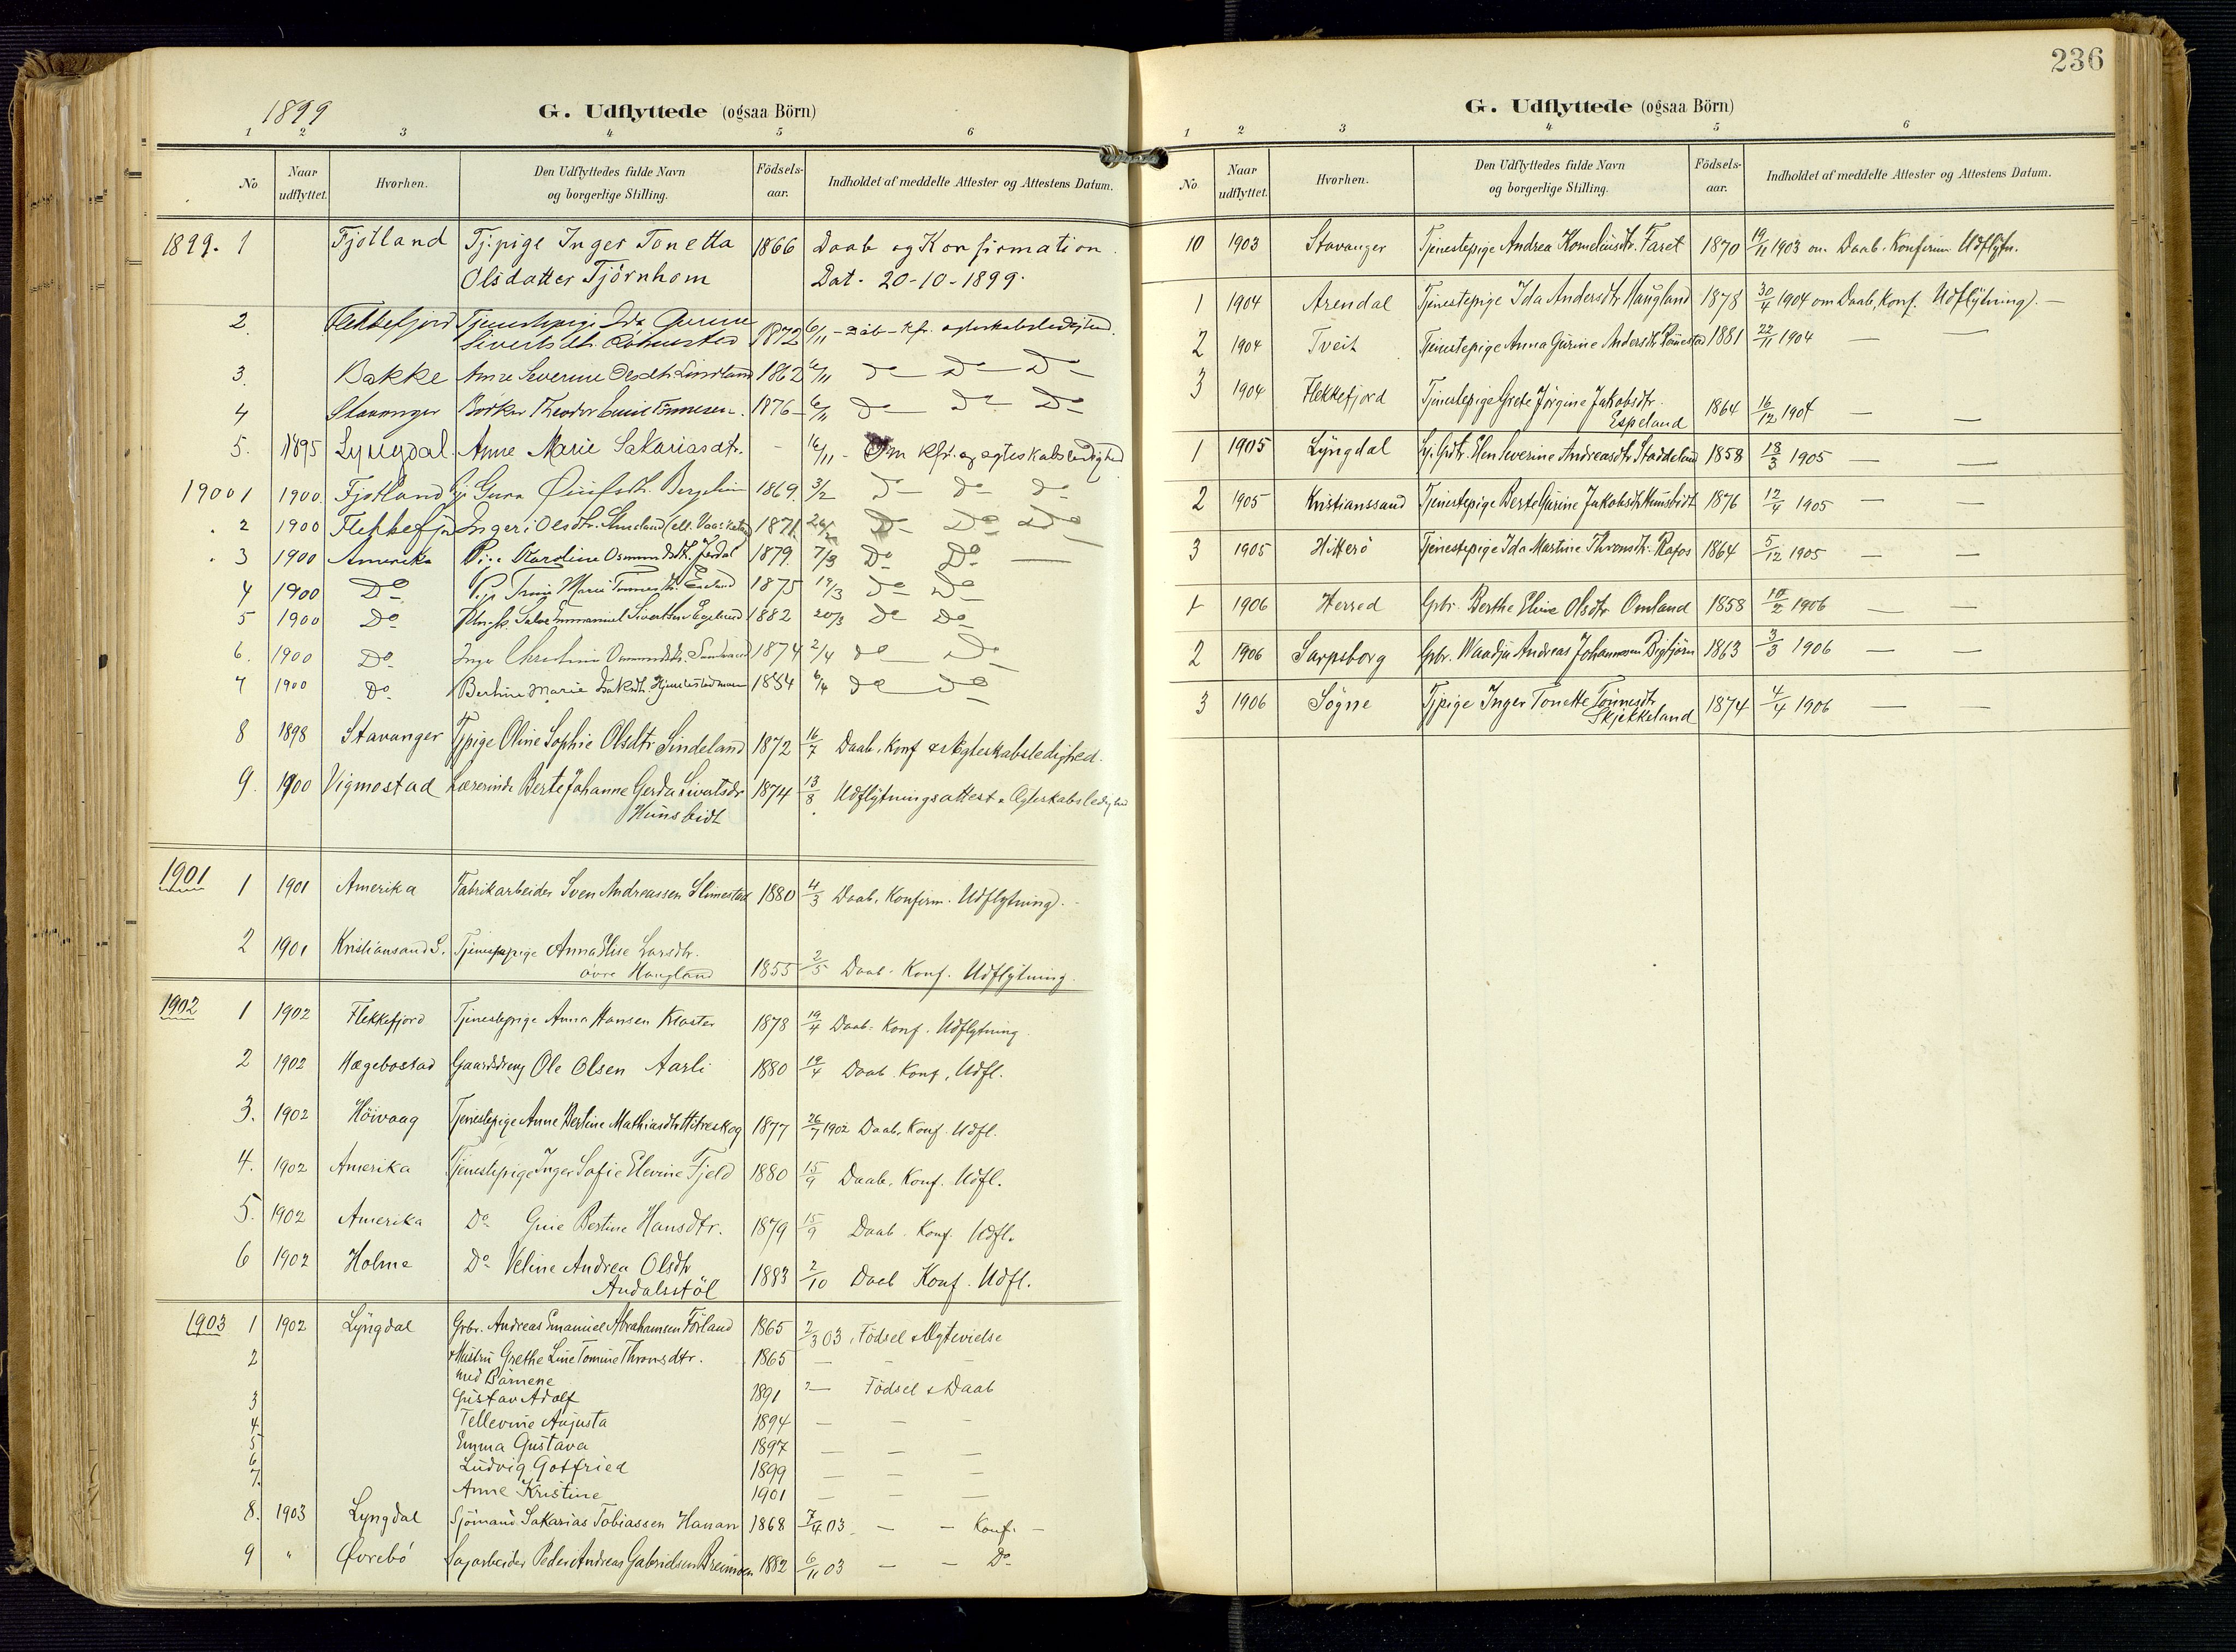 1899
G. Udflyttede (ogsaa Börn)
1 2 3 4 5 6
No
Naar udflyttet.
Hvorhen.
Den Udflyttedes fulde Navn og borgerlige Stilling.
Födsels-aar.
Indholdet af meddelte Attester og Attestens Datum.
1899. 1 Fjotland Tjpige Inger Tonetta 1866 Daab og Konfirmation.
Olsdatter Tjörnhom Dat. 20-10-1899.
2. Flekkefjord Tjenestepige Ida
Sivertsdtr. 1872 6/11 - Dåb - Kfr. ægteskabsledighed.
3. Bakke Anne Severine Olsdtr. Lindland 1862 6/11 Do Do Do
4 Stavanger Bödker Theodor Tönnesen. 1876 6/11 Do Do Do
5. 1895 Lyngdal. Anne Marie Sakariasdtr. - 16/11 - Om Kfr. og ægteskabsledighed
1900 1 1900. Fjotland Gura 1869. 3/2 Do Do Do
2 1900 Flekkefj Inger Olsdtr. 1871. Do Do Do
3 1900 Amerika Pige Karoline Osmundsdtr. Jerdal 1879. 7/3 Do Do
4 1900 Do Pige Marie Tønnesdtr. 1875 19/3 Do Do
5 1900 Do Salve Emmanuel Sivertsen Egeland 1882 20/3 Do Do
6. 1900 Do Inger Christine Osmundsdtr. 1874 2/4 Do Do
7 1900 Do Bertine Marie Isaksdtr. 1854 6/4 Do Do
8 1898 Stavanger Tjpige Oline Sophie Olsdtr Sindeland 1872 16/7 Daab, Konf & Ægteskabsledighed.
9. 1900 Vigmostad Lærerinde Berte Johanne Gerda Sivertsdtr 1874 13/8 Udflytningsattest & Ægteskabsledighed
Hunsbidt
1901 1 1901 Amerika Fabrikarbeider Sven Andreassen Slimestad 1880 4/3 Daab, Konfirm. Udflytning.
2 1901 Kristiansand S. Tjenestepige Anna Elise Larsdtr.
övre Haugland 1855 2/5 Daab. Konf. Udflytning.
1902 1 1902 Flekkefjord Tjenestepige Anna Hansen Kloster 1878 19/4 Daab. Konf. Udflytning
2 1902 Hægebostad Gaardsdreng Ole Olsen Aarli 1880 19/4 Daab. Konf. Udfl.
3. 1902 Höivaag Tjenestepige Anne Bertine Mathiasdtr Hitreskog 1877 26/7 1902 Daab. Konf. Udfl.
4. 1902 Amerika Tjenestepige Inger Sofie Elevine Fjeld 1880 15/9 Daab. Konf. Udfl.
5. 1902 Amerika Do Gine Bertine Hansdtr. 1879 15/9 Daab. Konf. Udfl.
6 1902 Holme Do Veline Andrea Olsdtr
Andalsstöl 1883 2/10 Daab Konf. Udfl.
1903 1 1902 Lyngdal Grbr. Andreas Emanuel Abrahamsen Förland 1865 2/3 03. Födsel & Ægtevielse
2 & Hustru Grethe Line Tomine Thronsdtr. 1865 — - -
med Börnene
3 Gustav Adolf 1891 — Födsel & Daab
4 Tellevine Augusta 1894 — — -
5 Emma Gustava 1897 — — —
6 Ludvig Gotfried 1899 — — —
7. Anne Kristine 1901 — — —
8. 1903 Lyngdal Sjömand Sakarias Tobiassen Hanan 1868 7/4 03. — - Konf. -
9 " Øvrebö Sagarbeider Peder Andreas Gabrielsen 1882 6/11 03 — - Do
236
G. Udflyttede (ogsaa Börn)
1 2 3 4 5 6
No
Naar udflyttet.
Hvorhen.
Den Udflyttedes fulde Navn og borgerlige Stilling.
Födsels-aar.
Indholdet af meddelte Attester og Attestens Datum.
10 1903 Stavanger Tjenestepige Andrea Korneliusdtr. Faret 1870 19/11 1903 om Daab. Konfirm. Udflytn.
1 1904 Arendal Tjenestepige Ida Andersdtr Haugland 1878 30/4 1904 om Daab, Konf. Udflytning). —
2 1904 Tveit Tjenestepige Anna Gurine Andersdtr 1881 22/11 1904 — —
3 1904 Flekkefjord Tjenestepige Grete Jörgine Jakobsdtr.
Espeland 1864 16/12 1904 — —
1 1905 Lyngdal Elen Severine Andreasdtr Staddeland 1858 18/3 1905 — —
2 1905 Kristianssand Tjenestepige Berte Gurine Jakobsdtr Hunsbidt 1876 12/4 1905 — —
3 1905 Hitterö Tjenestepige Ida Martine Thronsdtr. Rafos 1864 5/12 1905 — —
1 1906 Herred Grbr. Berthe Eline Olsdtr Omland 1858 10/2 1906 — —
2 1906 Sarpsborg Grbr. Waadja Andreas Johannesen Bigtjörn 1863 3/3 1906 — —
3 1906 Sögne Tjpige Inger Tonette Tönnesdtr
Skjekkeland 1874 4/4 1906 — —